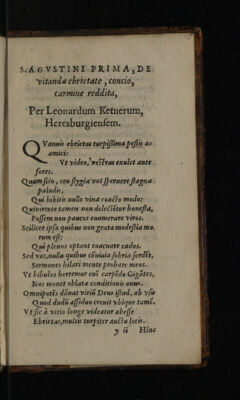 S. AGVSTINI PRIMA, DE
vitanda ebrietate, concio,
carmine reddita,
Per Leonardum Ketnerum,
Heresburgiensem.
QVamuis ebrietas turpißima pestis
amici:
Vt video, vestras exulet ante
fores.
Quam scio, ceu stygia vos spernere stagna
paludis,
Qui bibitis nullo vina coacto modo:
Qui vivunt tamen non delectetur honesta,
Possem non paucos enumerare viros.
Scilicet ipsa quibus non grata modestia mo
rum est:
Qui plenos optant euacuare cados.
Sed vos, nulla quibus cōuiuia sobria sordēt,
Sermones hilari mente probate meos.
Vt bibulos hortemur eni carpēdo Gigātes,
Nos monet oblata conditionis onus.
Omnipotēs dānat vitiū Deus istud, ab vsu
Quod dudū aßiduo creuit vbique tamē.
Vt sic à vitio longe videatur abesse
Ebrietas, multū turpiter aucta locis.
y ii Hinc